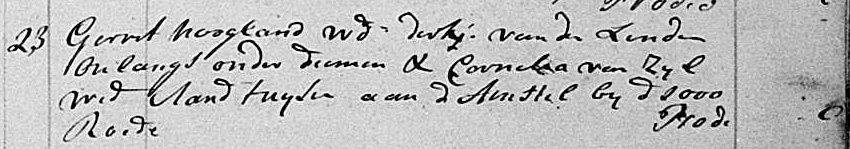 23 Gerret hoogland wd: derkje van der Linden
onlangs onder diemen & Cornelia van Zyl
wed Aland tuysen aan d Amstel by d 1000
Roede Prode